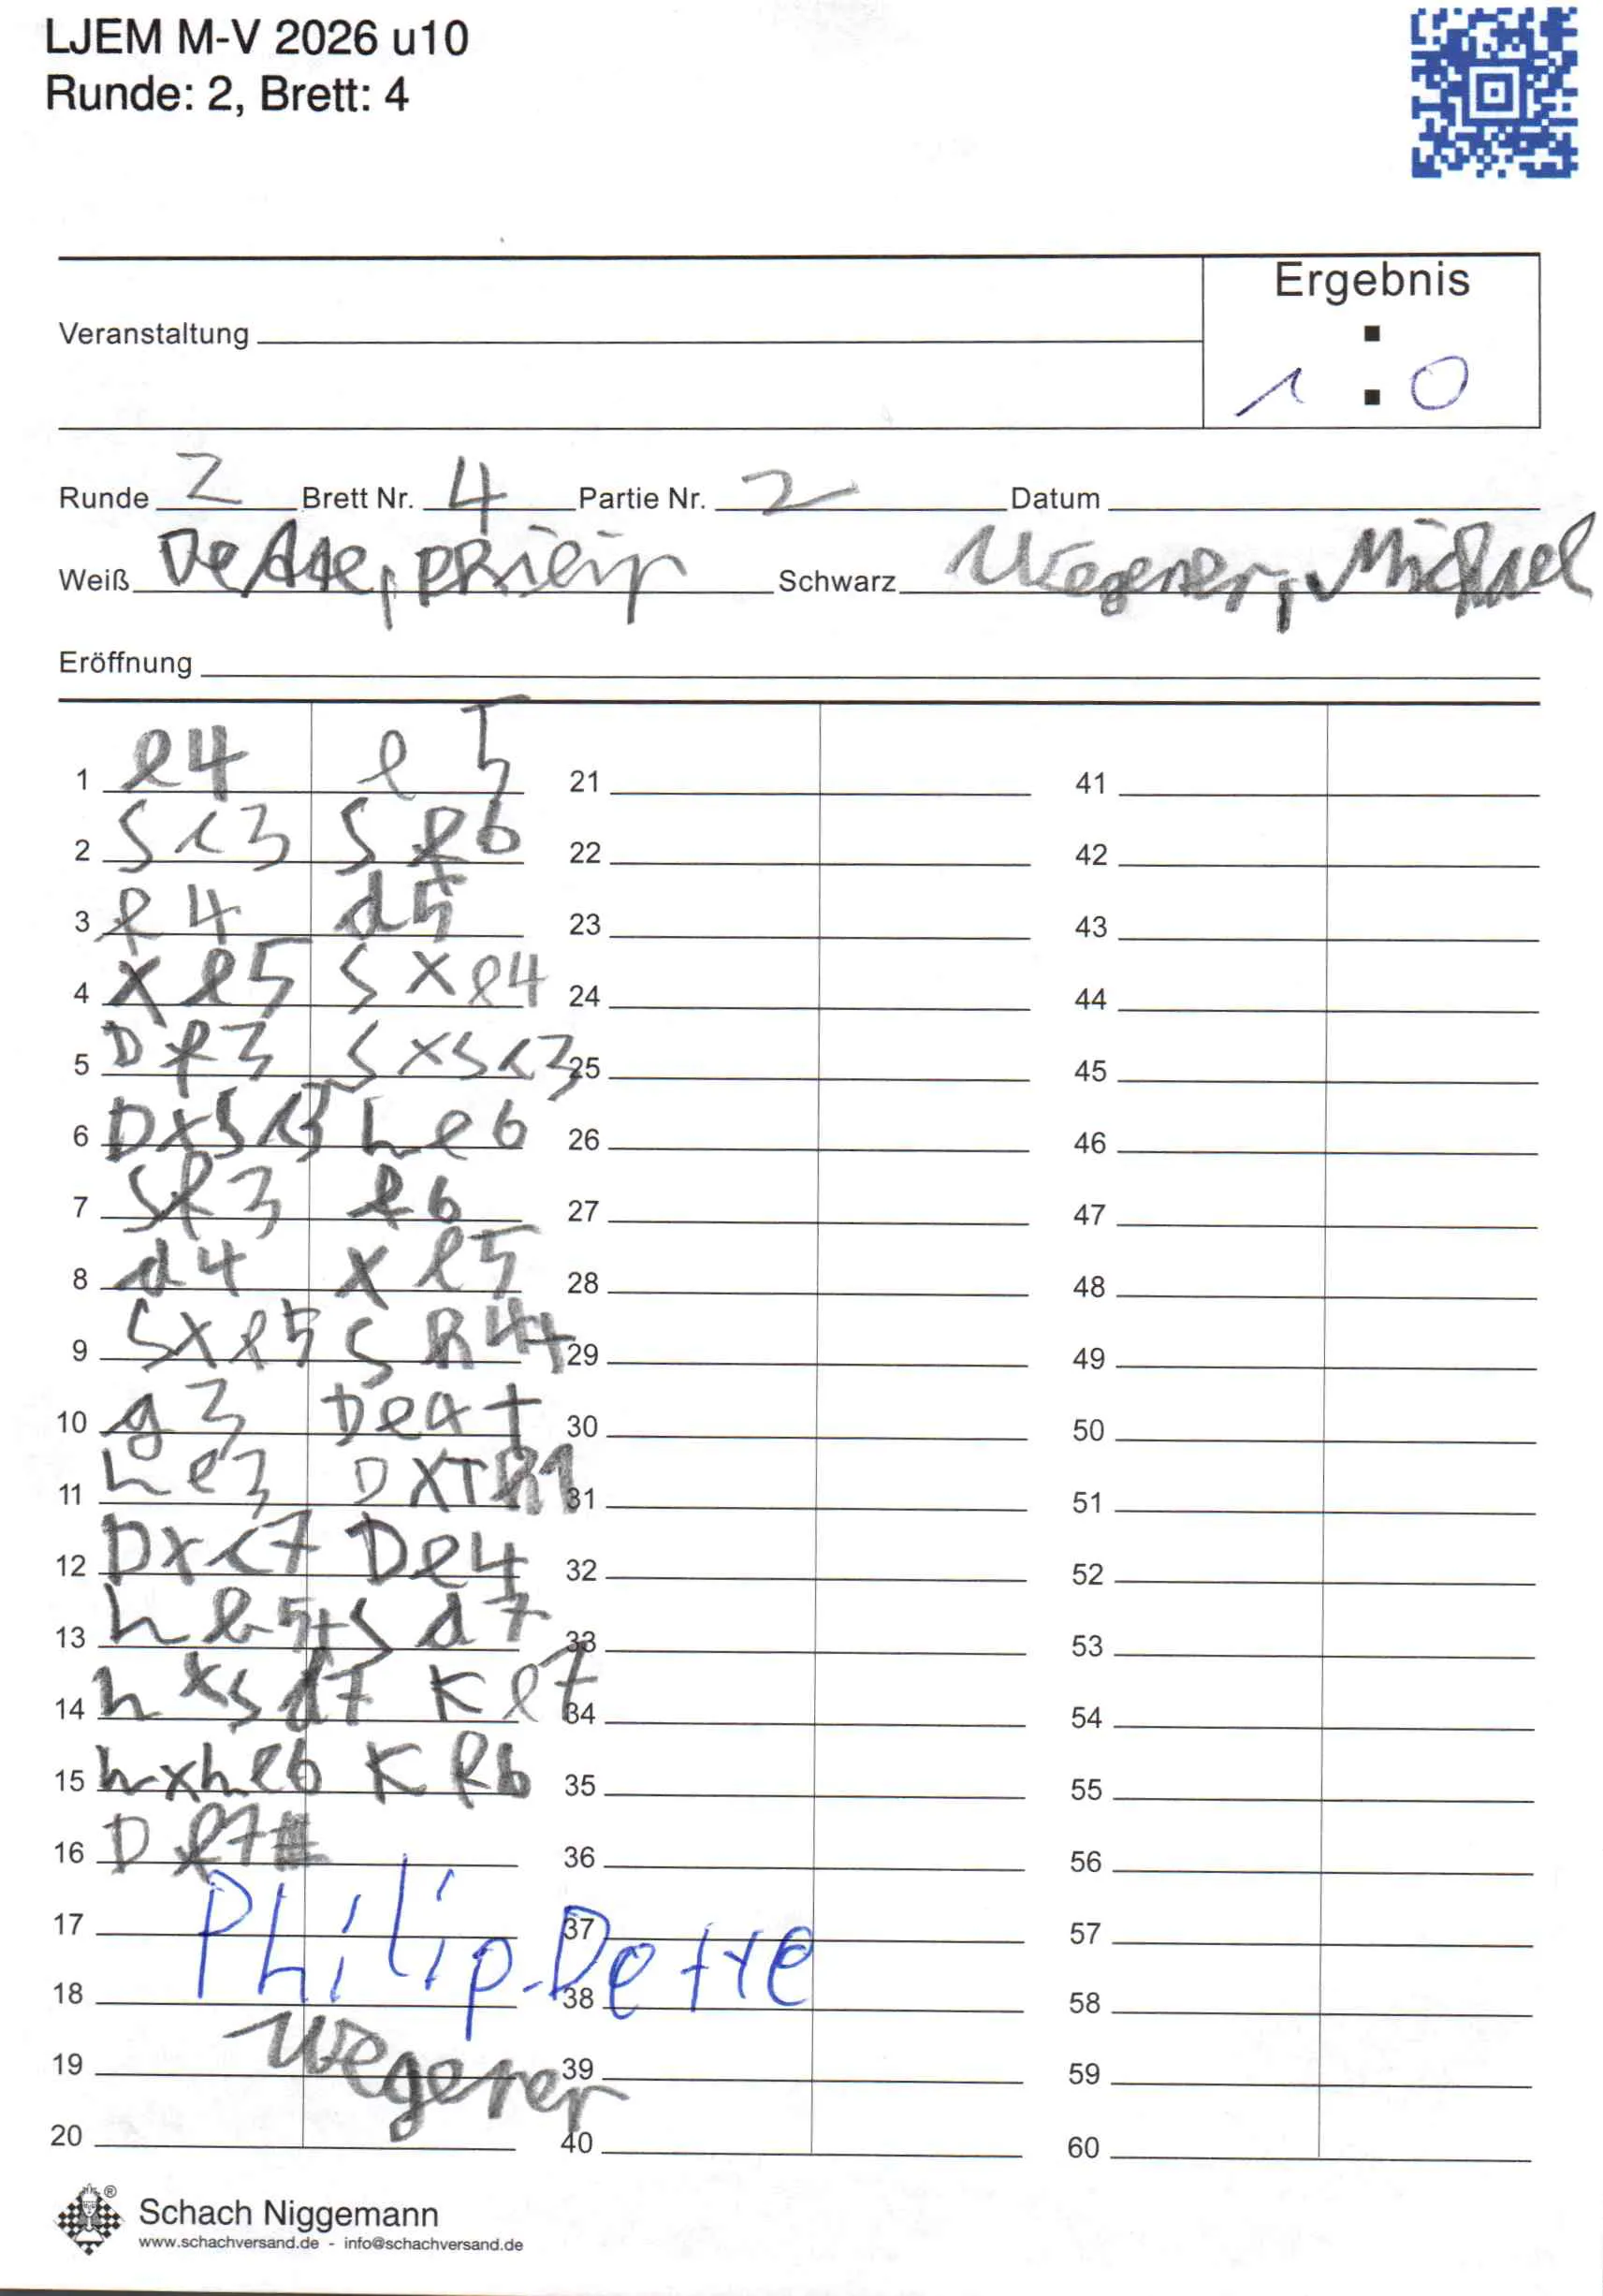 LJEM M-V 2026 u10
Runde: 2, Brett: 4
Ergebnis
Veranstaltung
:
1 : 0
Runde 2 Brett Nr. 4 Partie Nr. 2 Datum
Weiß Schwarz Wegener, Michael
Eröffnung
1 e4 e5 21 41
2 Sc3 Sf6 22 42
3 f4 d5 23 43
4 xe5 Sxe4 24 44
5 Df3 SxSc3 25 45
6 DxSc3 Le6 26 46
7 Sf3 f6 27 47
8 d4 xe5 28 48
9 Sxe5 Dh4+ 29 49
10 g3 De4+ 30 50
11 Le3 DxTh1 31 51
12 Dxc7 De4 32 52
13 Lb5+ Sd7 33 53
14 LxSd7 Ke7 34 54
15 LxLe6 Kf6 35 55
16 Df7# 36 56
17 37 57
Philip Dettre
18 38 58
Wegener
19 39 59
20 40 60
Schach Niggemann
www.schachversand.de - info@schachversand.de